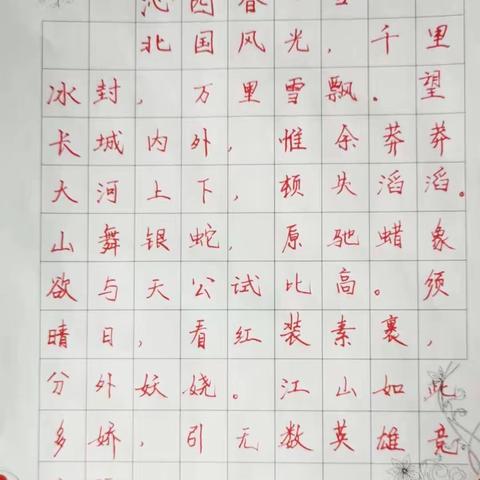 沁园春
北国风光,千里
冰封,万里雪飘.望
长城内外,惟余莽莽
大河上下,顿失滔滔。
山舞银蛇,原驰蜡象
欲与天公试比高。须
晴日,看红装素裹,
分外妖娆。江山如此
多娇,引无数英雄竞